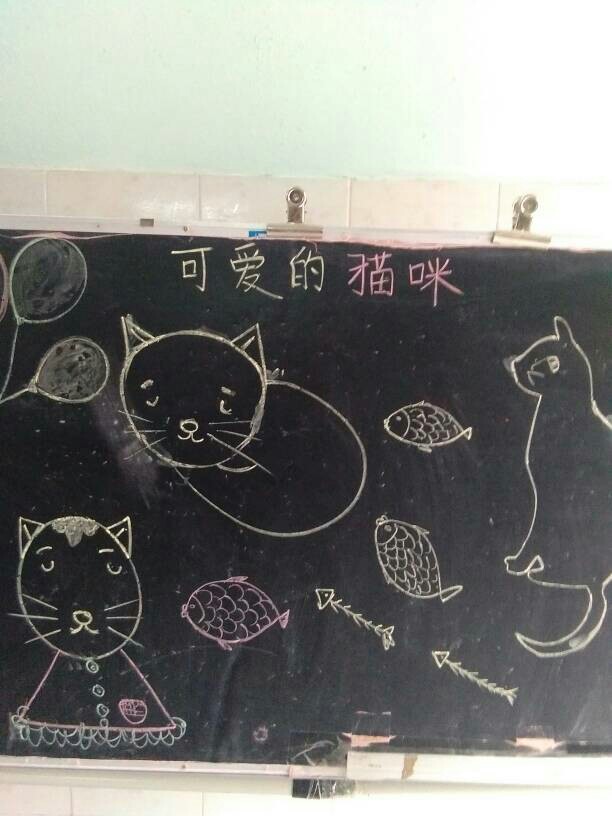 可爱的猫咪